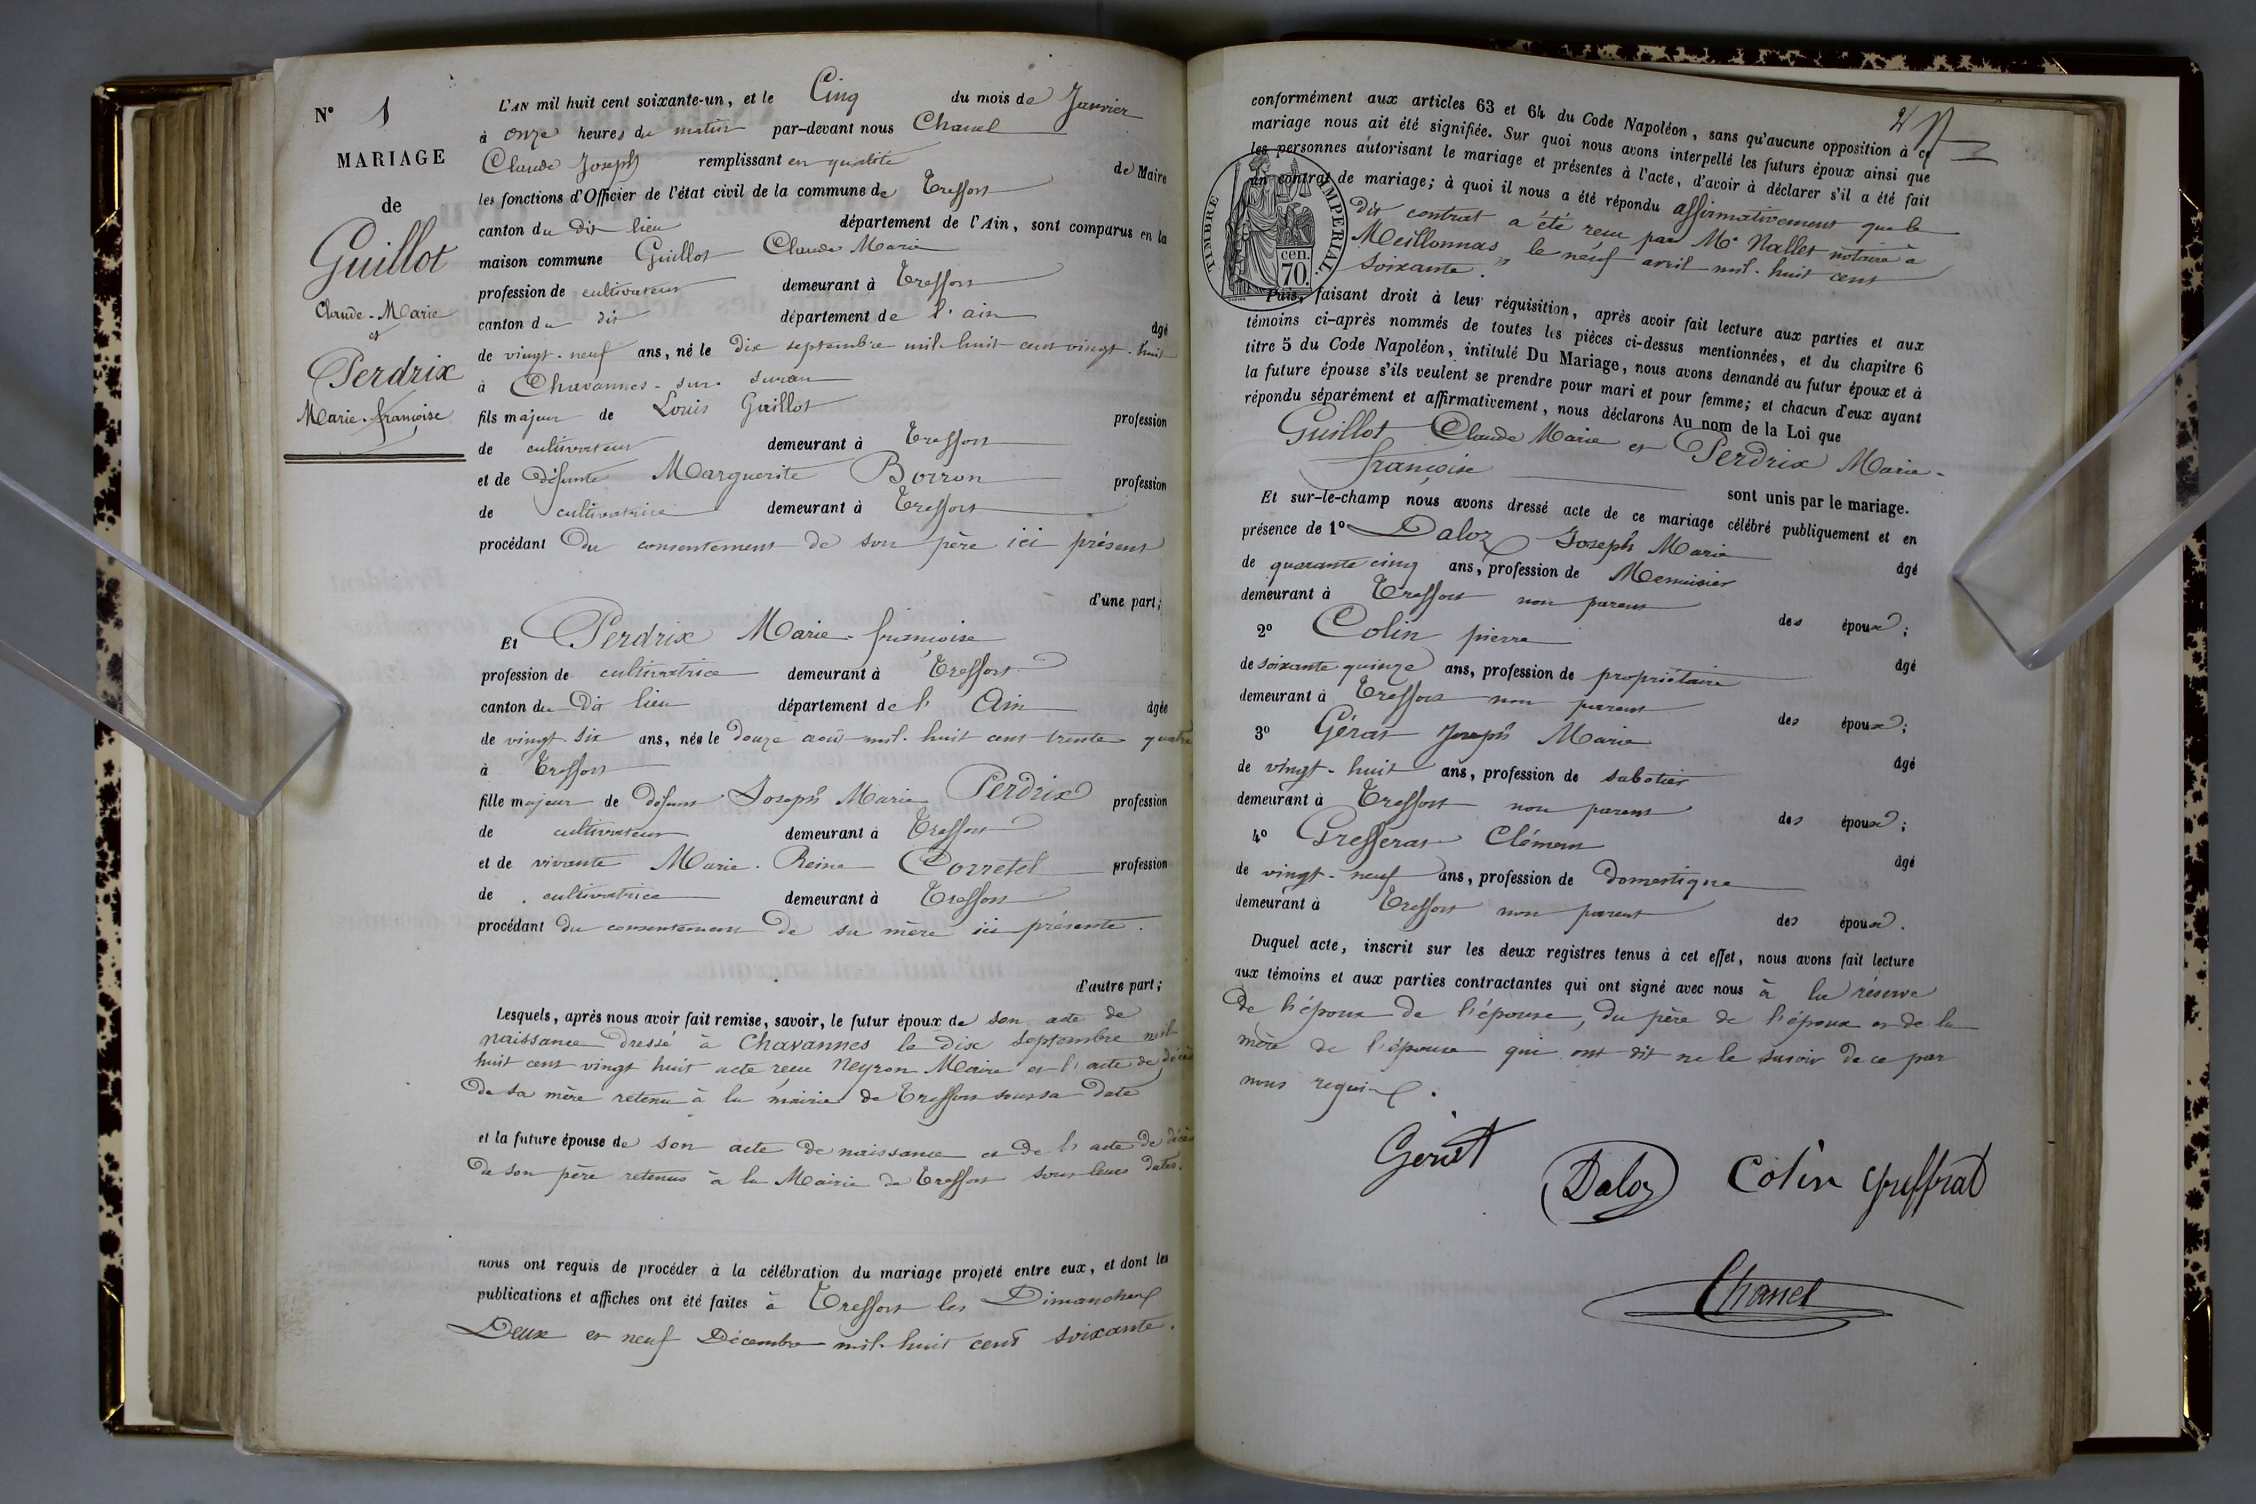 N° 1
MARIAGE
de
Guillot
Claude-Marie
et
Perdrix
Marie-françoise
L'AN mil huit cent soixante-un, et le Cinq du mois de Janvier
à onze heures du matin par-devant nous Chanel
Claude Joseph remplissant en qualité de Maire
les fonctions d'Officier de l'état civil de la commune de Treffort
canton du dit lieu département de l'Ain, sont comparus en la
maison commune Guillot Claude Marie
profession de cultivateur demeurant à Treffort
canton du dit département de l'ain âgé
de vingt-neuf ans, né le dix septembre mil huit cent vingt-huit
à Chavannes-sur-suran
fils majeur de Louis Guillot profession
de cultivateur demeurant à Treffort
et de défunte Marguerite Borron profession
de cultivatrice demeurant à Treffort
procédant du consentement de son père ici présent
d'une part;
Et Perdrix Marie-françoise
profession de cultivatrice demeurant à Treffort
canton du dit lieu département de l'Ain âgée
de vingt six ans, née le douze août mil-huit cent trente quatre
à Treffort
fille majeur de défunt Joseph Marie Perdrix profession
de cultivateur demeurant à Treffort
et de vivante Marie-Reine Corretel profession
de cultivatrice demeurant à Treffort
procédant du consentement de sa mère ici présente.
d'autre part;
Lesquels, après nous avoir fait remise, savoir, le futur époux de son acte de
naissance dressé à Chavannes le dix septembre mil
huit cent vingt huit acte reçu Neyron Maire et l'acte de décès
de sa mère retenu à la mairie de Treffort sous sa date
et la future épouse de son acte de naissance et de l'acte de décès
de son père retenus à la Mairie de Treffort sous leurs dates.
nous ont requis de procéder à la célébration du mariage projeté entre eux, et dont les
publications et affiches ont été faites à Treffort les Dimanches
Deux et neuf Décembre mil-huit cent soixante.
2
conformément aux articles 63 et 64 du Code Napoléon, sans qu'aucune opposition à ce
mariage nous ait été signifiée. Sur quoi nous avons interpellé les futurs époux ainsi que
les personnes autorisant le mariage et présentes à l'acte, d'avoir à déclarer s'il a été fait
un contrat de mariage; à quoi il nous a été répondu affirmativement que le
TIMBRE IMPERIAL.
cen.
70.
dit contrat a été reçu par Me Nallet notaire à
Meillonnas, le neuf avril mil-huit cent
soixante.
Puis, faisant droit à leur réquisition, après avoir fait lecture aux parties et aux
témoins ci-après nommés de toutes les pièces ci-dessus mentionnées, et du chapitre 6
titre 5 du Code Napoléon, intitulé Du Mariage, nous avons demandé au futur époux et à
la future épouse s'ils veulent se prendre pour mari et pour femme; et chacun d'eux ayant
répondu séparément et affirmativement, nous déclarons Au nom de la Loi que
Guillot Claude Marie et Perdrix Marie-
françoise sont unis par le mariage.
Et sur-le-champ nous avons dressé acte de ce mariage célébré publiquement et en
présence de 1° Daloz Joseph Marie âgé
de quarante cinq ans, profession de Menuisier
demeurant à Treffort non parent des époux;
2° Colin pierre âgé
de soixante quinze ans, profession de propriétaire
demeurant à Treffort non parent des époux;
3° Gérat Joseph Marie âgé
de vingt-huit ans, profession de sabotier
demeurant à Treffort non parent des époux;
4° Grefferat Clément âgé
de vingt-neuf ans, profession de domestique
demeurant à Treffort non parent des époux.
Duquel acte, inscrit sur les deux registres tenus à cet effet, nous avons fait lecture
aux témoins et aux parties contractantes qui ont signé avec nous à la réserve
de l'époux de l'épouse, du père de l'époux et de la
mère de l'épouse qui ont dit ne le savoir de ce par
nous requis.
Gerat
Daloz Colin Greffrat
Chanel